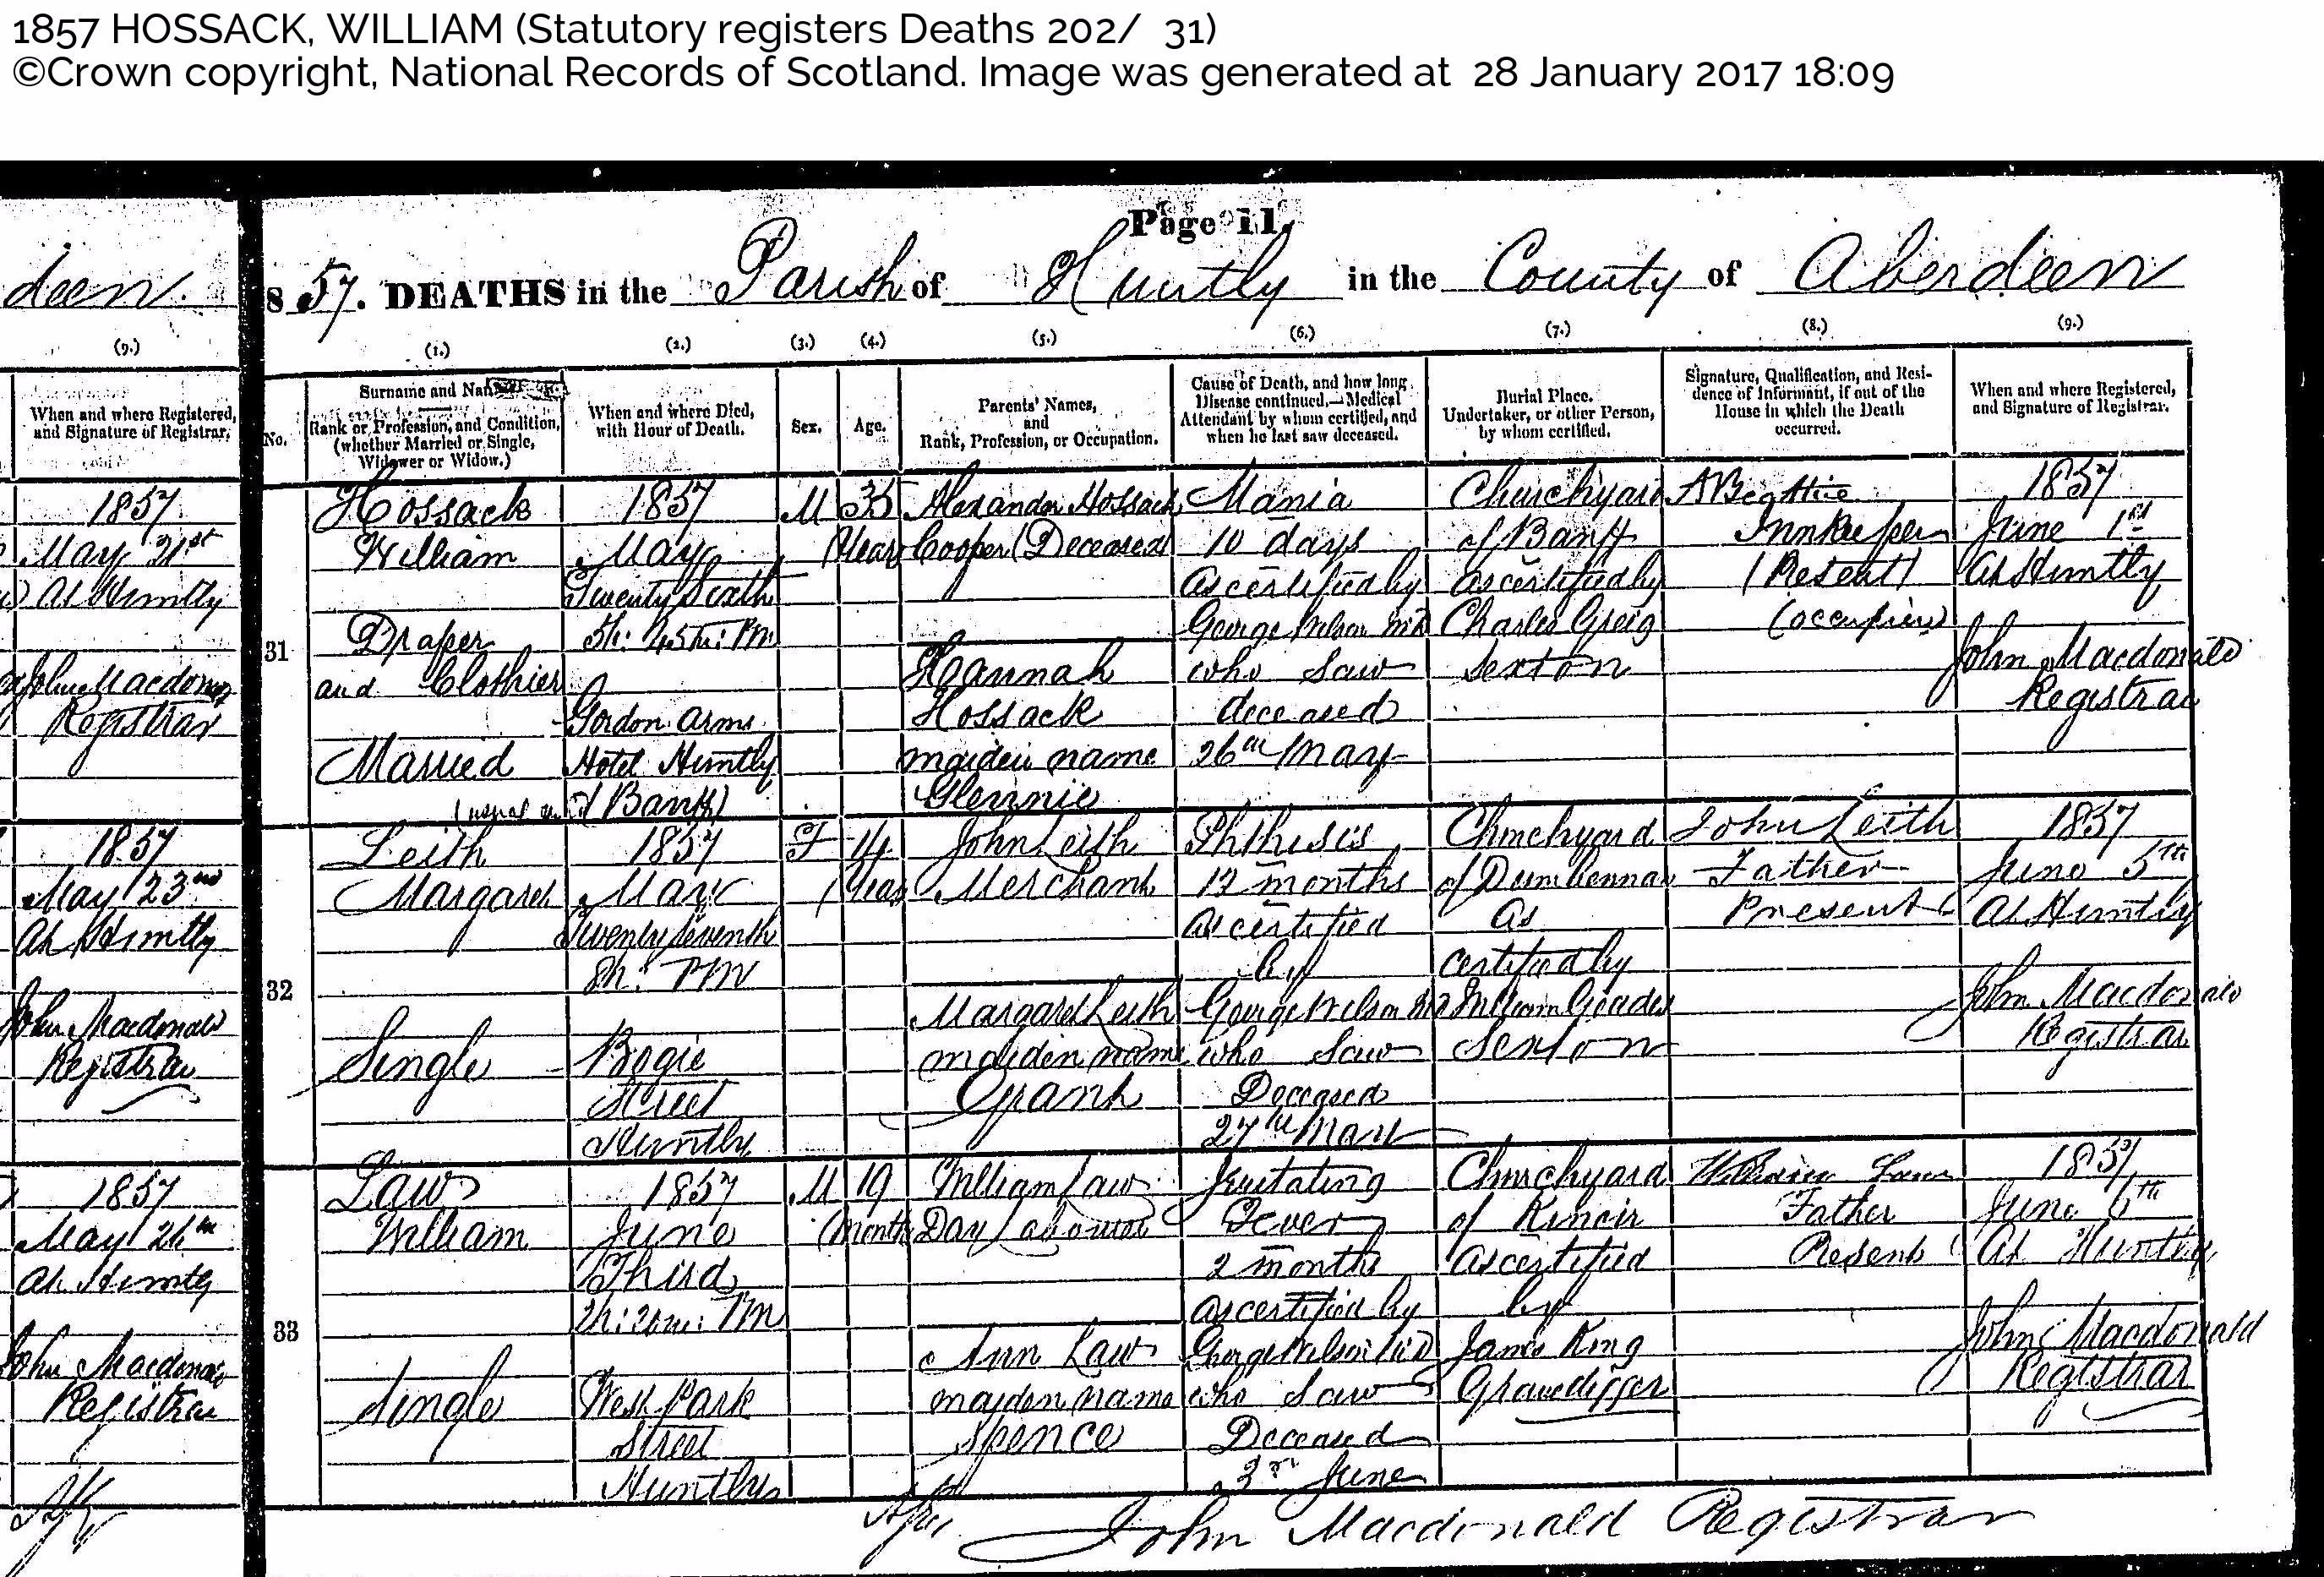 1857 HOSSACK, WILLIAM (Statutory registers Deaths 202/ 31)
©Crown copyright, National Records of Scotland. Image was generated at 28 January 2017 18:09
Page 11.
deen
857. DEATHS in the Parish of Huntly in the County of Aberdeen
(9.)
When and where Registered,
and Signature of Registrar.
1857
May 21st
At Huntly
John Macdonald
Registrar
1857
May 23rd
At Huntly
John Macdonald
Registrar
1857
May 24th
At Huntly
John Macdonald
Registrar
(1.) (2.) (3.) (4.) (5.) (6.) (7.) (8.) (9.)
No.
Surname and Name
Rank or Profession, and Condition,
(whether Married or Single,
Widower or Widow.)
When and where Died,
with Hour of Death.
Sex.
Age.
Parents' Names,
and
Rank, Profession, or Occupation.
Cause of Death, and how long
Disease continued,—Medical
Attendant by whom certified, and
when he last saw deceased.
Burial Place.
Undertaker, or other Person,
by whom certified.
Signature, Qualification, and Resi-
dence of Informant, if out of the
House in which the Death
occurred.
When and where Registered,
and Signature of Registrar.
31
Hossack
William
Draper
and Clothier
Married
1857
May
Twenty Sixth
5h: 45m: PM
Gordon Arms
Hotel Huntly
(usual of Banff)
M
35
Years
Alexander Hossack
Cooper (Deceased)
Hoannah
Hossack
maiden name
Glennie
Mania
10 days
As certified by
George Wilson MD
who saw
deceased
26th May
Churchyard
of Banff
as certified by
Charles Greig
Sexton
A Beattie
Innkeeper
(Present)
(occupier)
1857
June 1st
At Huntly
John Macdonald
Registrar
32
Leith
Margaret
Single
1857
May
Twenty Seventh
8h: PM
Bogie
Street
Huntly
F
14
Years
John Leith
Merchant
Margaret Leith
maiden name
Grant
Phthisis
12 months
As certified
by
George Wilson MD
who saw
Deceased
27th May
Churchyard
of Dumbennan
As
certified by
William Geddes
Sexton
John Leith
Father
Present
1857
June 5th
At Huntly
John Macdonald
Registrar
33
Law
William
Single
1857
June
Third
2h: 20m: PM
West Park
Street
Huntly
M
19
Months
William Law
Day Labourer
Ann Law
maiden name
Spence
Irritating
Fever
2 months
as certified by
George Wilson MD
who saw
Deceased
3rd June
Churchyard
of Kinoir
As certified
by
James King
Gravedigger
William Law
Father
Present
1857
June 6th
At Huntly
John Macdonald
Registrar
John Macdonald Registrar